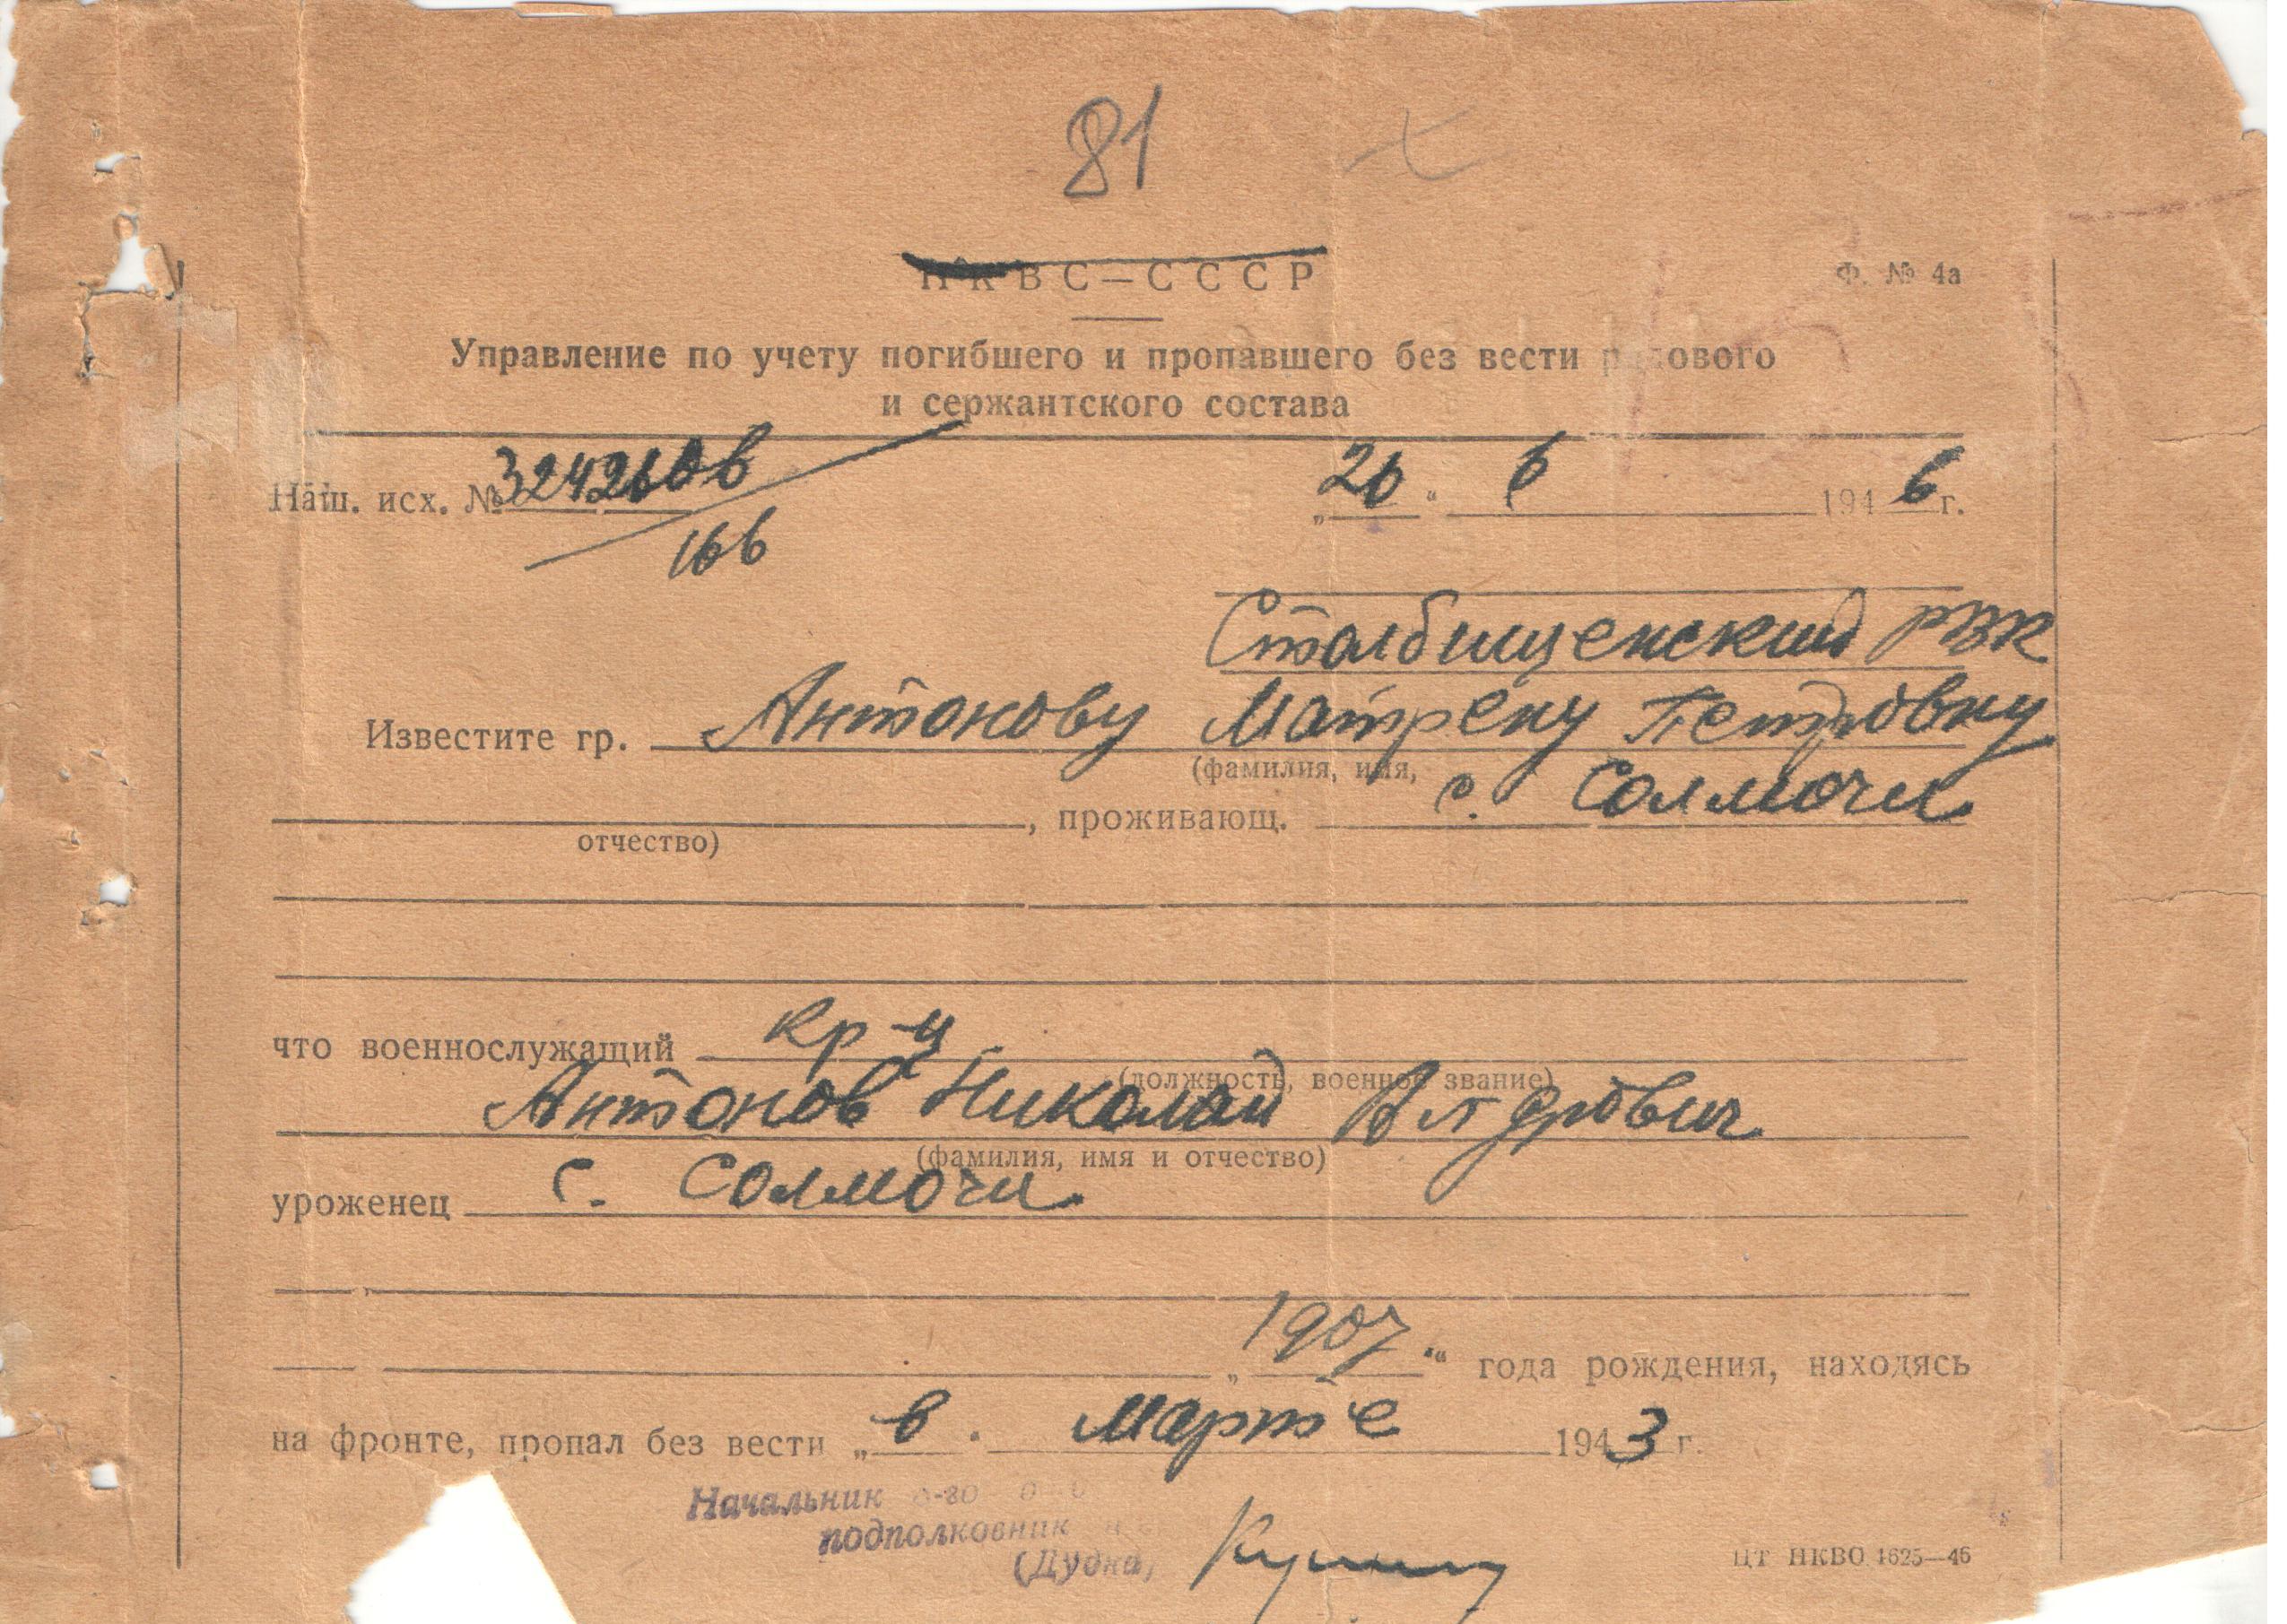 81
НКВС — СССР
Ф. № 4а
Управление по учету погибшего и пропавшего без вести рядового
и сержантского состава
Наш. исх. №
166
„26“ 6 1946 г.
Столбищенский РВК
Известите гр. Антонову Матрену Петровну
(фамилия, имя,
отчество) , проживающ. с. Солмочи
что военнослужащий кр-ц
(должность, военное звание)
Антонов Николай
(фамилия, имя и отчество)
уроженец с. Солмочи
„1907“ года рождения, находясь
на фронте, пропал без вести „в“ марте 1943 г.
Начальник
подполковник
(Дудка)
ЦТ НКВО 1625—46